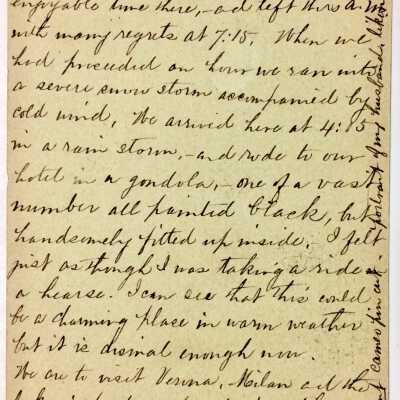 enjoyable time there, - and left this a.m.
with many regrets at 7:15. When we
had proceeded an hour we ran into
a severe snow storm accompanied by
cold wind, We arrived here at 4:05
in a rain storm, - and rode to our
hotel in a gondola, - one of a vast
number all painted black, but
handsomely fitted up inside. I felt
just as though I was taking a ride in
a hearse. I can see that this could
be a charming place in warm weather
but it is dismal enough now.
We are to visit Verona, Milan and the
cameo pin and portrait of my husband,